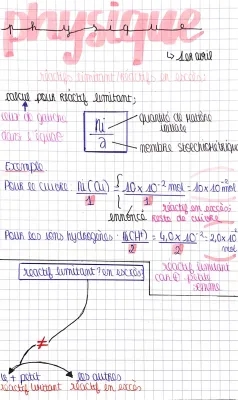 physique
physique
↳ 1er avril
réactifs limitant/réactifs en excès:
calcul pour réactif limitant:
ceux de gauche
dans l'équat°
ni
a
quantité de matière
initiale
nombre stœchiométrique
Exemple
Pour le cuivre ni(Cu) = 10 x 10⁻² mol = 10 x 10⁻² mol
1 1
énnoncé
réactif en excès:
reste du cuivre
Pour les ions hydrogènes: ni(H⁺) = 4,0 x 10⁻² = 2,0 x 10⁻² mol
2 2
réactif limitant
car + petite
réactif limitant ? en excès
≠
le + petit
réactif limitant
les autres
réactif en excès